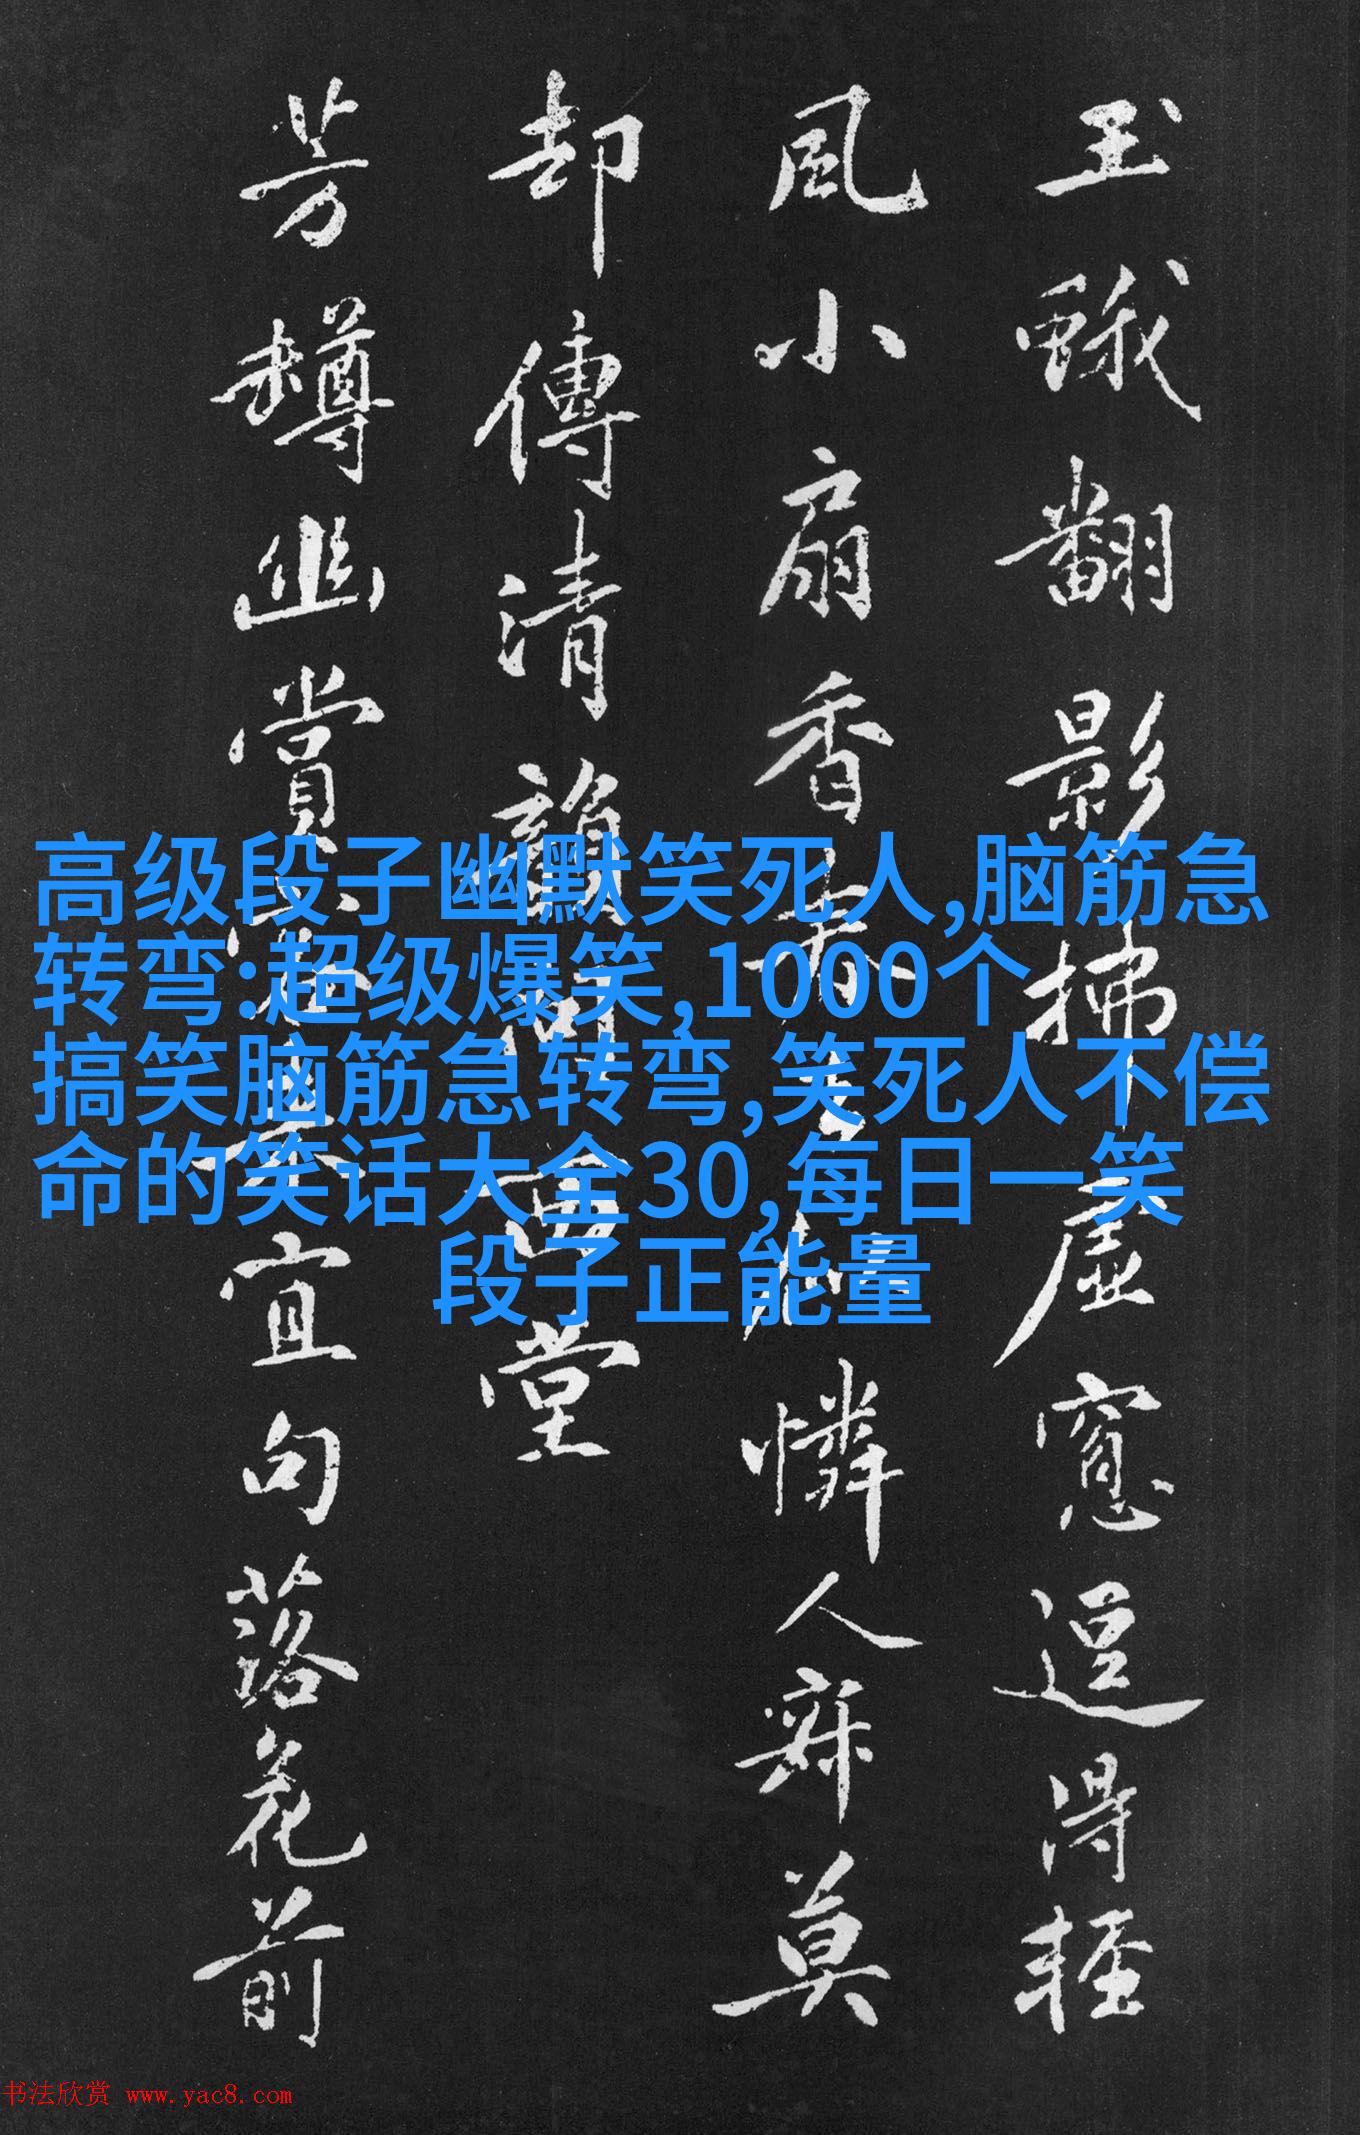 玉蛾翻影拂虚窓逗得轻
風小扇香
憐人寐莫
却傳清韻
堂
芳樽幽賞
宜句落花前
高级段子幽默笑死人,脑筋急
转弯:超级爆笑,1000个
搞笑脑筋急转弯,笑死人不偿
命的笑话大全30,每日一笑
段子正能量
书法欣赏 www.yac8.com